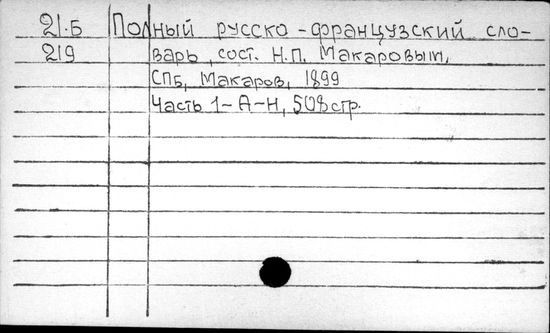 21.Б Полный русско-французский сло-
219 варь, сост. Н.П. Макаровым,
СПБ, Макаров, 1899
Часть 1-А-Н, 508 стр.